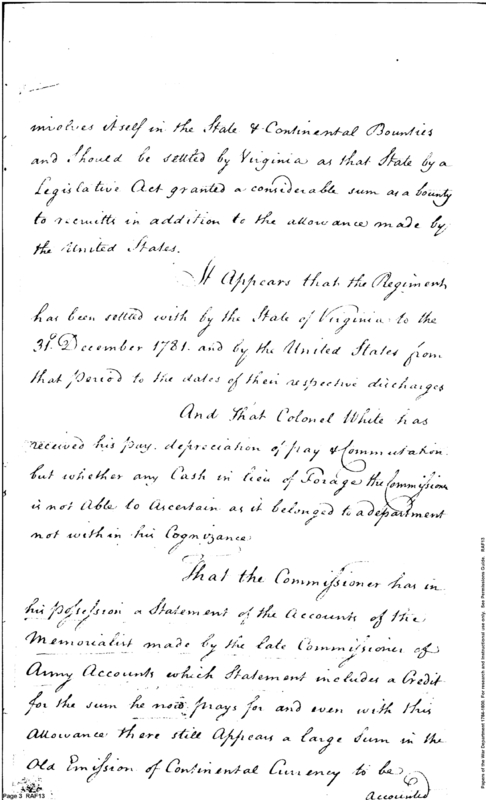 involves itself in the State & Continental Bounties
and Should be settled by Virginia as that State by a
Legislative Act granted a considerable sum as a bounty
to recruits in addition to the allowance made by
the United States.
It Appears that the Regiment
has been settled with by the State of Virginia to the
31st. December 1781. and by the United States from
that period to the dates of their respective discharges
And That Colonel White has
received his pay. depreciation of pay & Commutation.
but whether any Cash in lieu of Forage the Commissioner
is not Able to Ascertain as it belonged to a department
not within his Cognizance
That the Commissioner has in
his Possession a Statement of the Accounts of the
Memorialist made by the late Commissioner of
Army Accounts which Statement includes a Credit
for the sum he now prays for and even with this
Allowance there still Appears a large Sum in the
Old Emission of Continental Currency to be
accounted
Page 3 RAF13
Papers of the War Department 1784-1800. For research and instructional use only. See Permissions Guide. RAF13